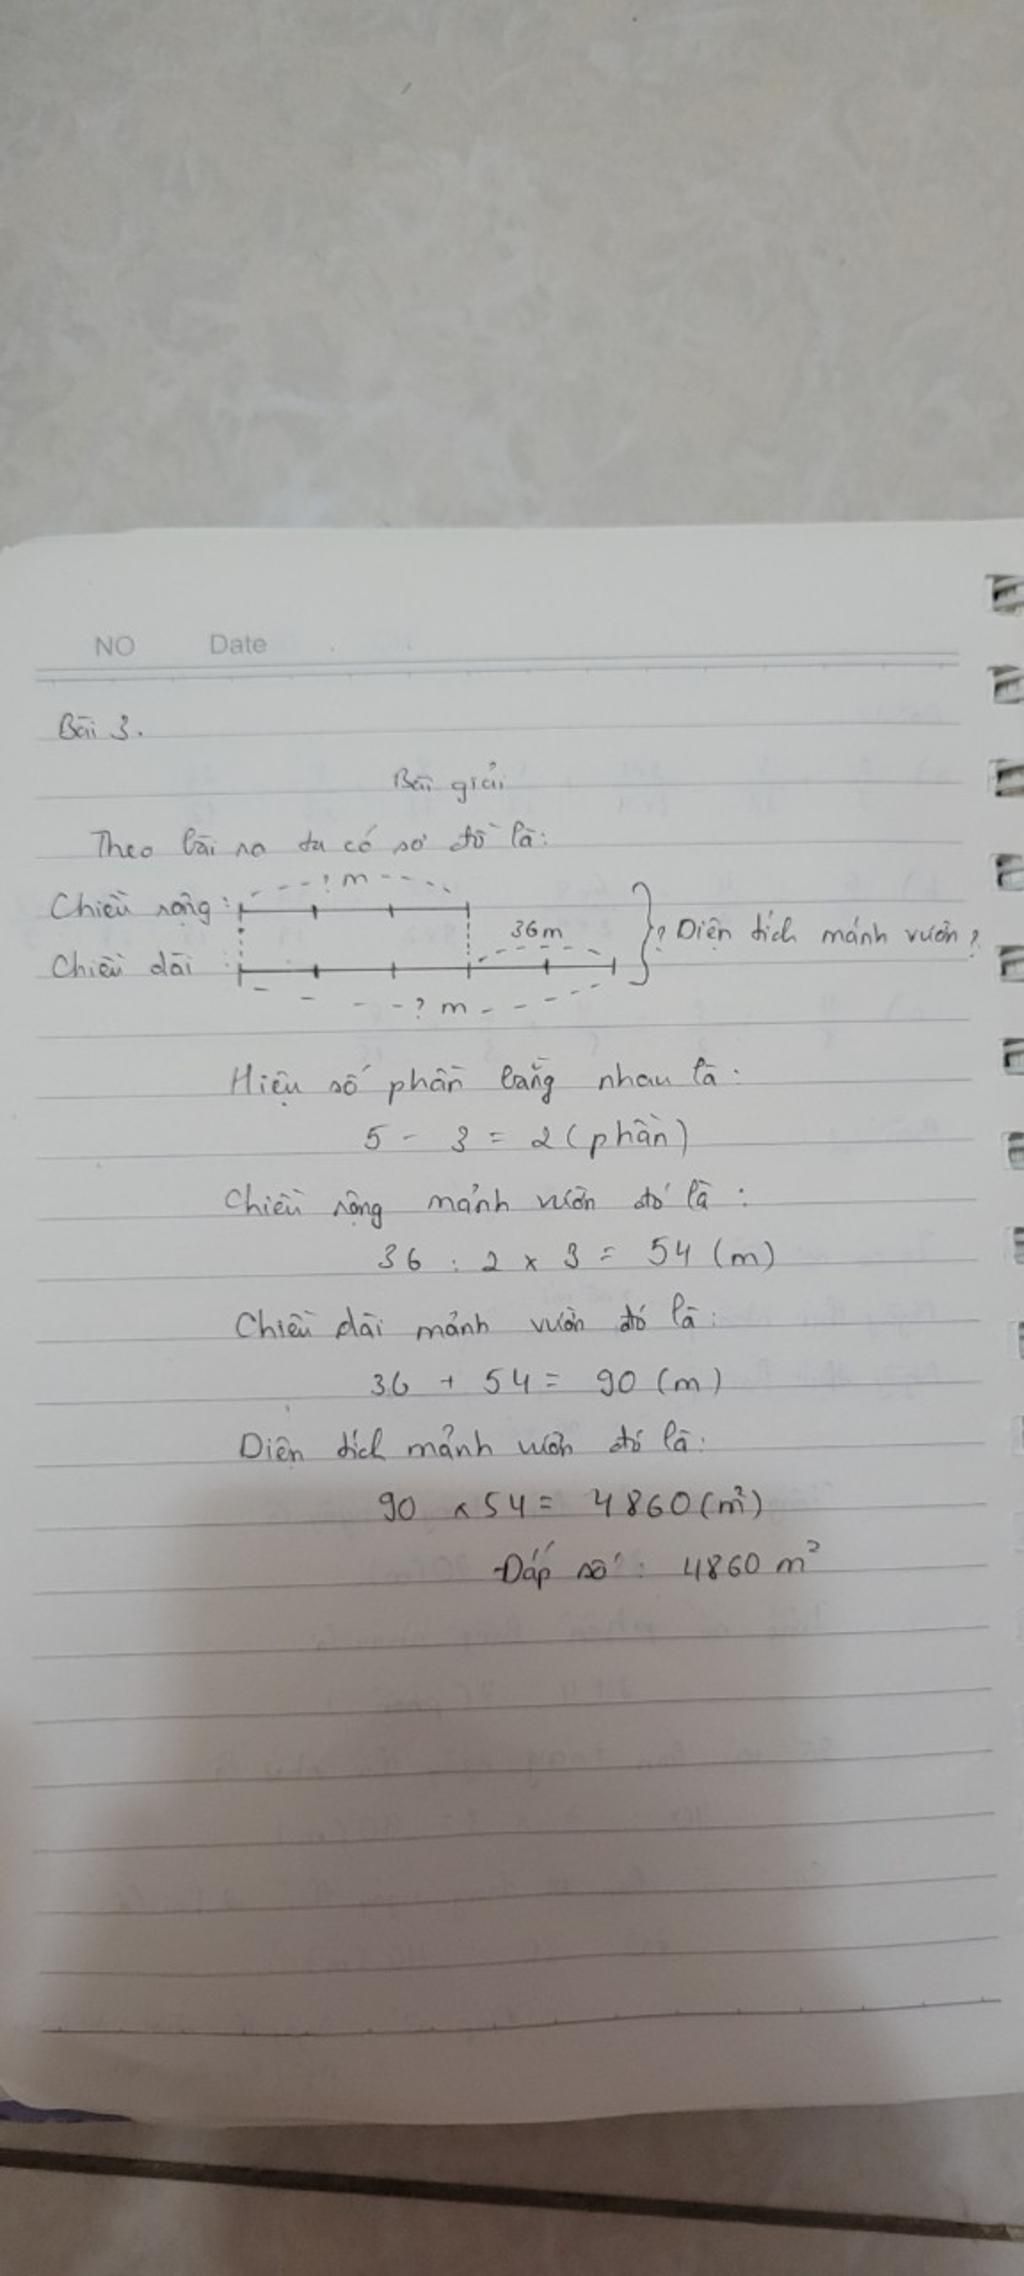 NO Date
Bài 3.
Bài giải
Theo bài ra ta có sơ đồ là:
? m
Chiều rộng :
36m
? Diện tích mảnh vườn ?
Chiều dài :
? m
Hiệu số phần bằng nhau là :
5 - 3 = 2 (phần)
Chiều rộng mảnh vườn đó là :
36 : 2 x 3 = 54 (m)
Chiều dài mảnh vườn đó là :
36 + 54 = 90 (m)
Diện tích mảnh vườn đó là :
90 x 54 = 4860 (m²)
Đáp số : 4860 m²